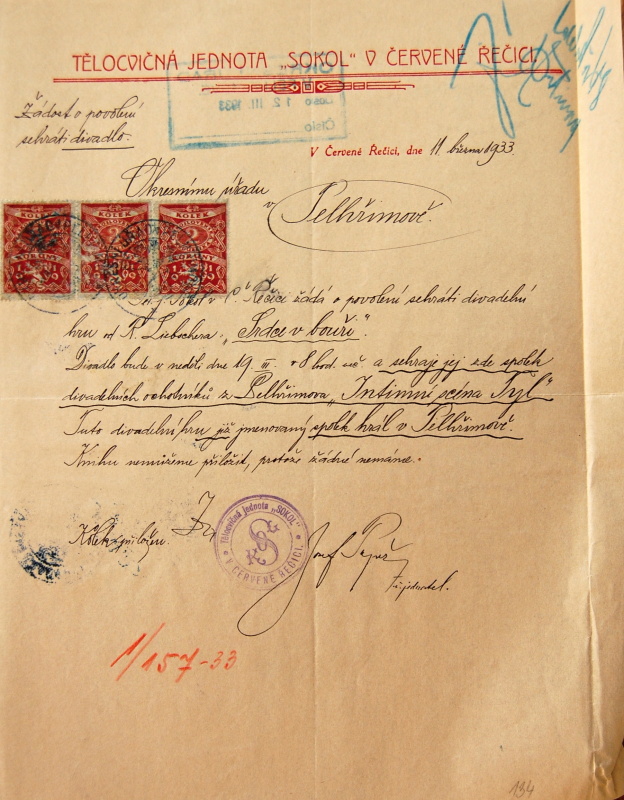 TĚLOCVIČNÁ JEDNOTA „SOKOL" V ČERVENÉ ŘEČICI.
Žádost o povolení
sehráti divadlo.
V Červené Řečici, dne 11. března 1933
Okresnímu úřadu
v Pelhřimově.
KOLEK KOLEK KOLEK
Těl. j. Sokol v Č. Řečici žádá o povolení sehráti divadelní
hru od R. „Srdce v bouři".
Divadlo bude v neděli dne 19. III. v 8 hod. več. a sehraje jej zde spolek
divadelních ochotníků z Pelhřimova „Intimní scéna Tyl"
Tuto divadelní hru již jmenovaný spolek hrál v Pelhřimově.
Knihu nemůžeme přiložit, protože žádné nemáme.
Kolek přiložen.
Tělocvičná jednota „SOKOL"
V ČERVENÉ ŘEČICI.
Josef
jednatel.
1/157-33
134